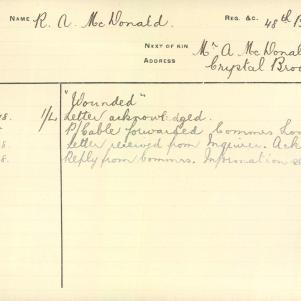 NAME R. A. McDonald. REG. &C. 48th B
NEXT OF KIN Mr A McDonal
ADDRESS Crystal Broo
"Wounded"
18. 1/L Letter acknowledged.
P/cable forwarded Commrs Lo
8. Letter received from Inquirer. Ack
8. Reply from Commrs. Information